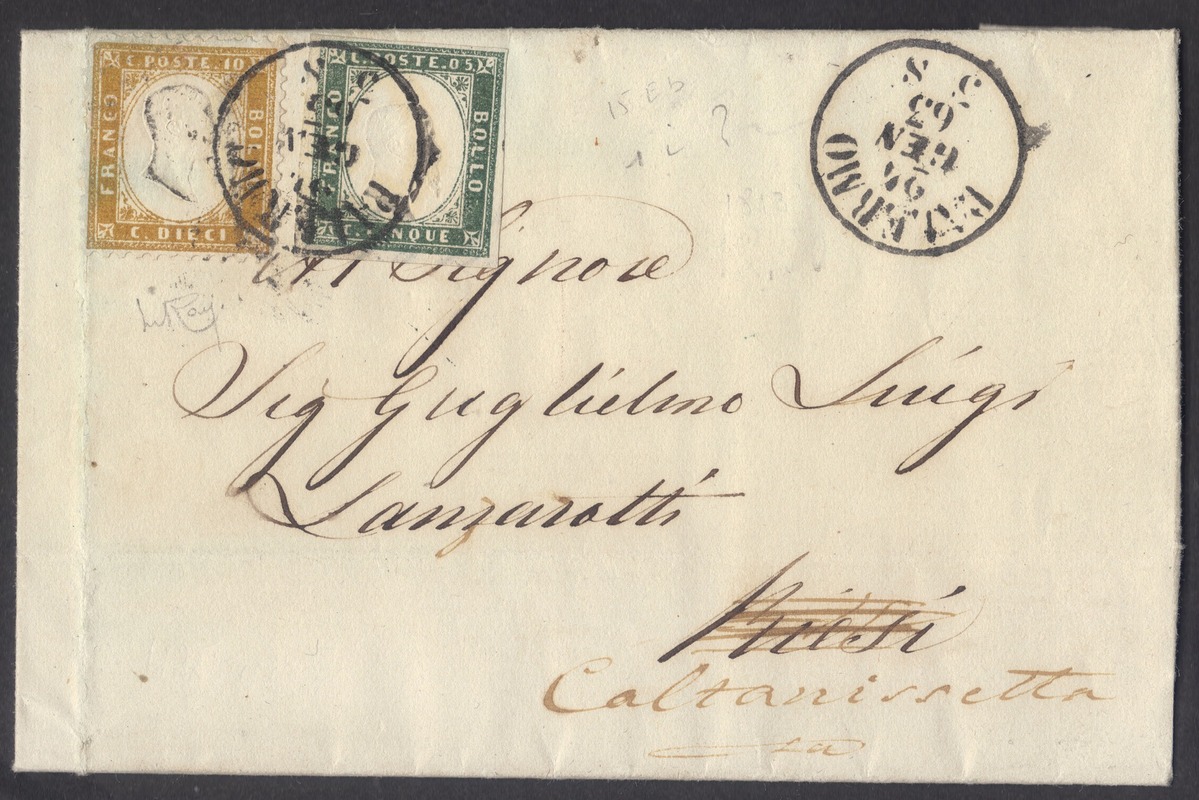 C. POSTE. 10
FRANCO
BOLLO
C. DIECI
C. POSTE. 05
FRANCO
BOLLO
C. CINQUE
PALERMO
24
GEN
63
3 S
15 Eb
Al Signore
Sig Guglielmo Luigi
Lanzarotti
Riesi
Caltanissetta